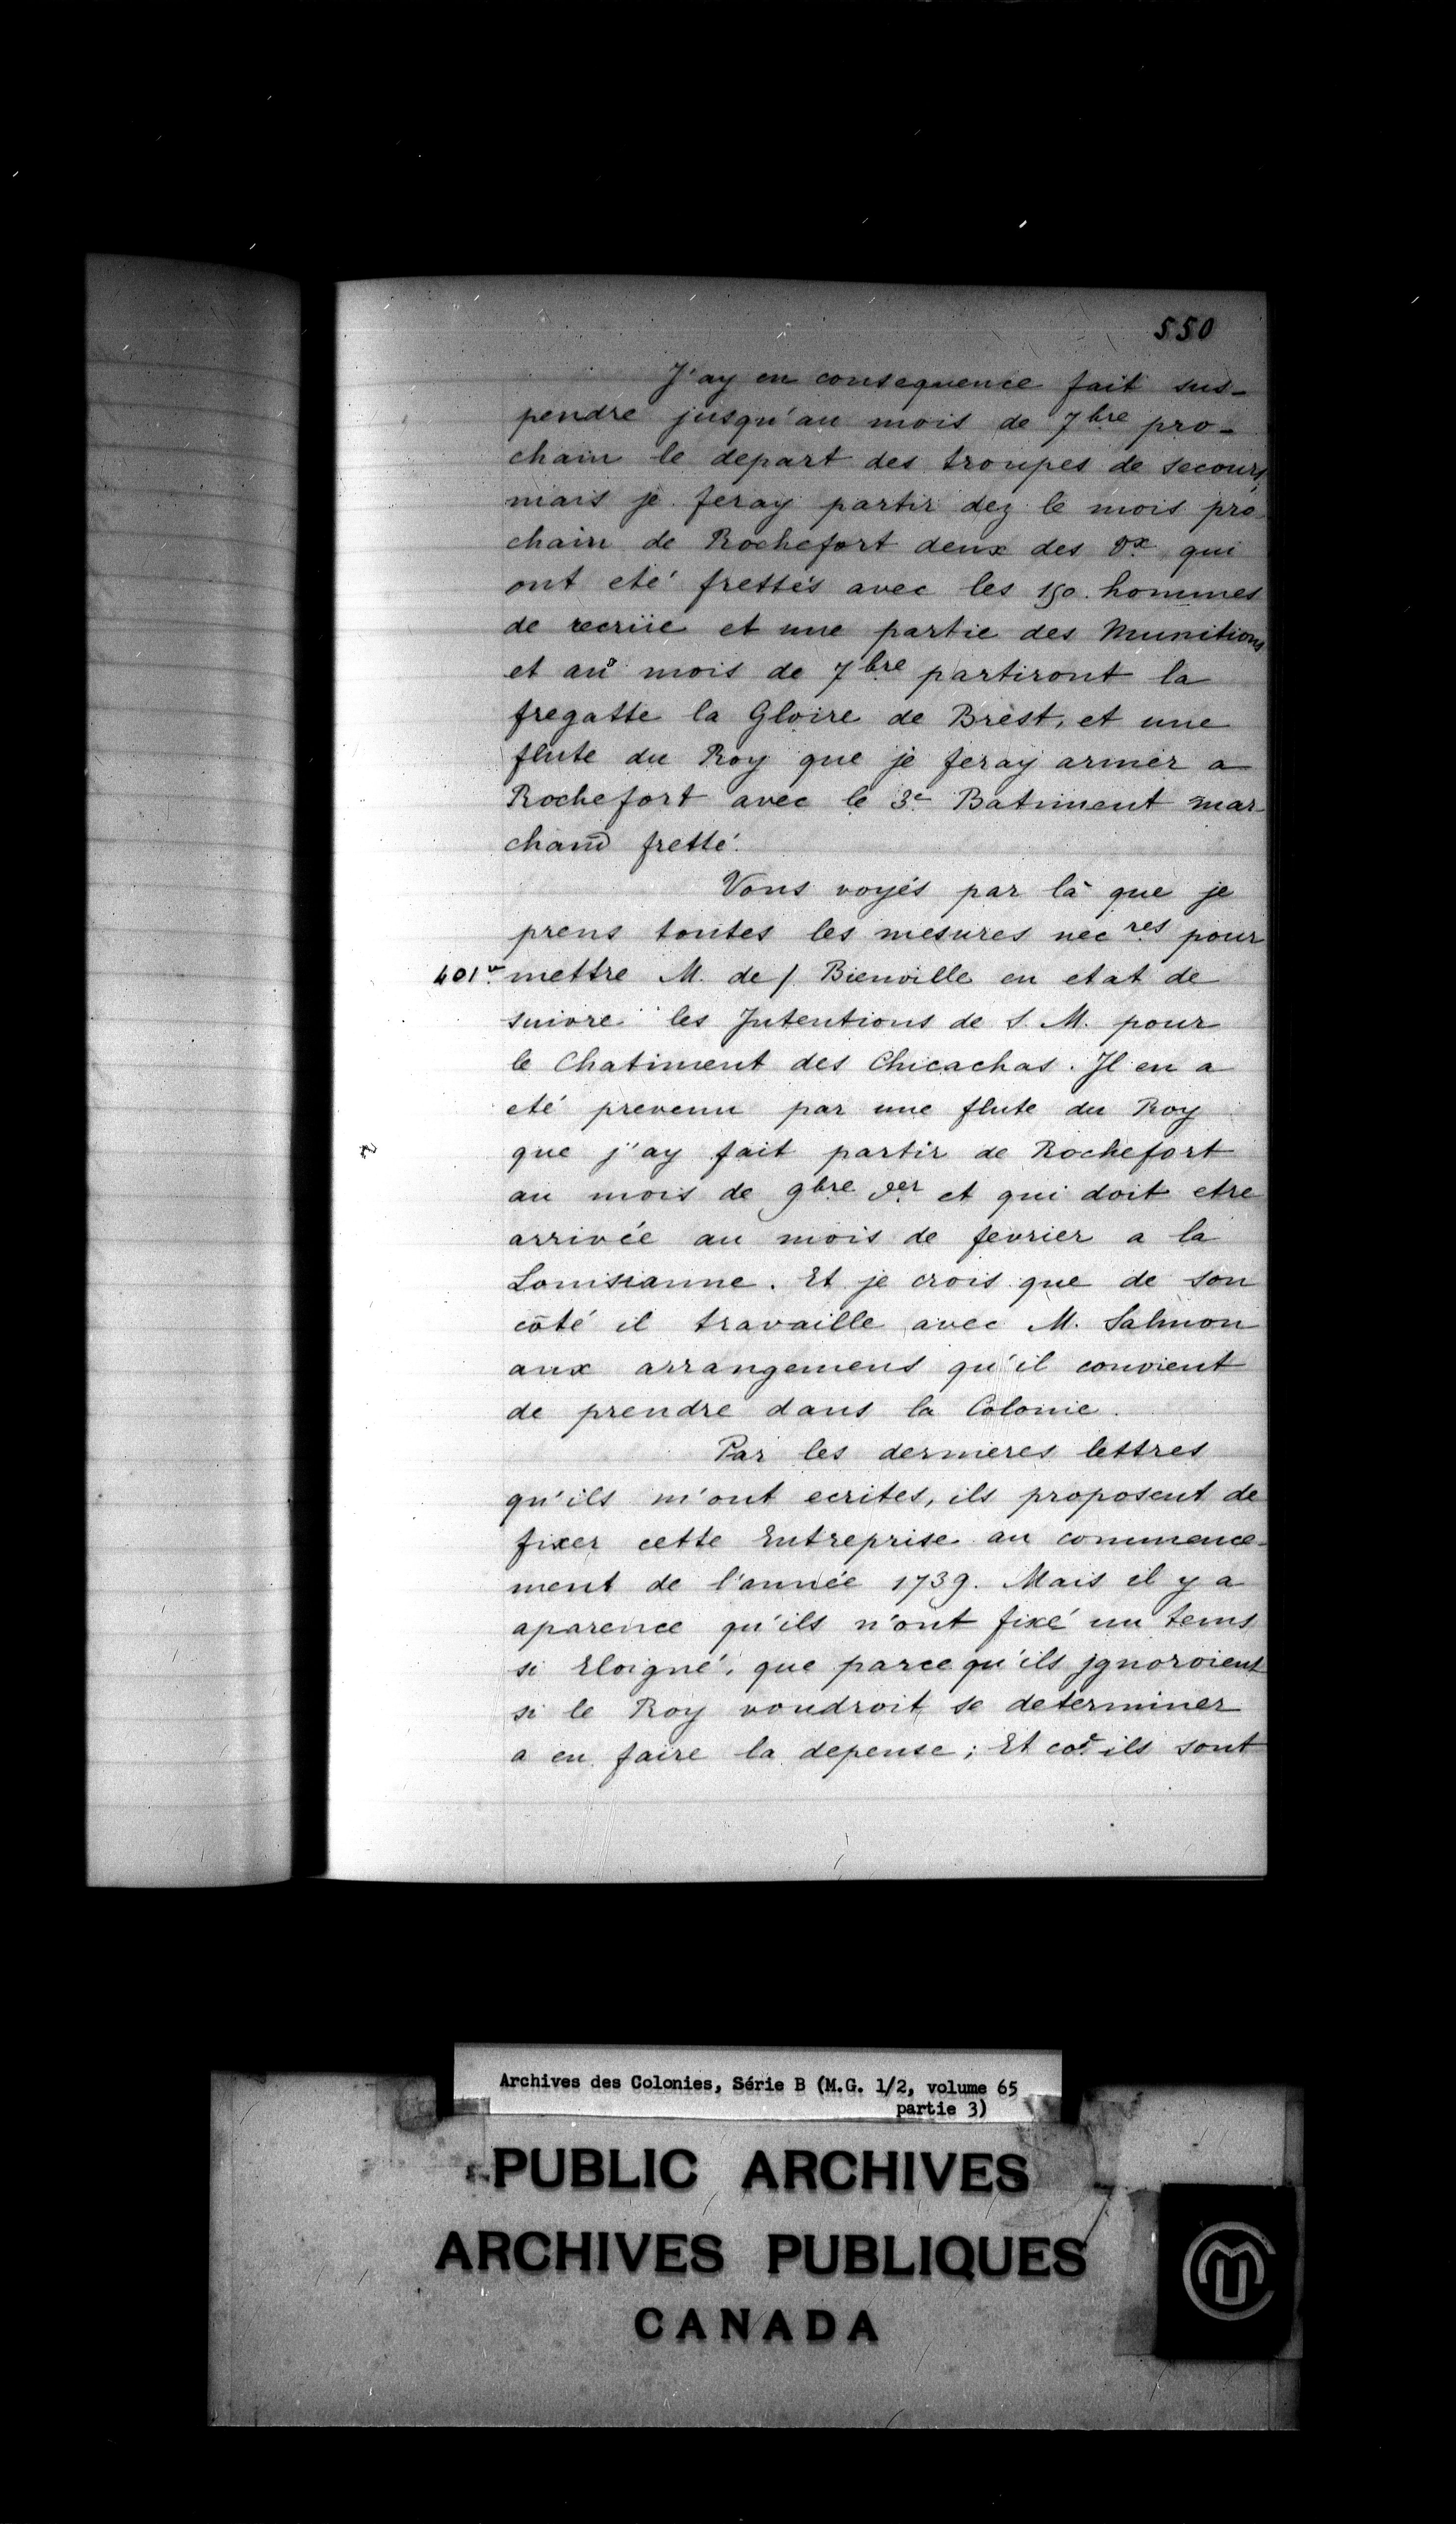 550
J'ay en consequence fait sus-
pendre jusqu'au mois de 7bre pro-
chain le depart des troupes de secours,
mais je feray partir dez le mois pro-
chain de Rochefort deux des Vx qui
ont eté frettés avec les 150. hommes
de recrüe et une partie des Munitions
et au mois de 7bre partiront la
fregatte la Gloire de Brest, et une
flute du Roy que je feray armer a
Rochefort avec le 3e Batiment mar-
chand fretté.
Vous voyés par là que je
prens toutes les mesures necres pour
401v. mettre M. de / Bienville en etat de
suivre les Intentions de S. M. pour
le Chatiment des Chicachas. Il en a
eté prevenu par une flute du Roy
que j'ay fait partir de Rochefort
au mois de 9bre der et qui doit etre
arrivée au mois de fevrier a la
Louisianne. Et je crois que de son
côté il travaille avec M. Salmon
aux arrangemens qu'il convient
de prendre dans la Colonie.
Par les dernieres lettres
qu'ils m'ont ecrites, ils proposent de
fixer cette Entreprise au commence-
ment de l'année 1739. Mais il y a
aparence qu'ils n'ont fixé un tems
si Eloigné, que parce qu'ils jgnoroient
si le Roy voudroit se determiner
a en faire la depense; Et ils sont
Archives des Colonies, Série B (M.G. 1/2, volume 65
partie 3)
PUBLIC ARCHIVES
ARCHIVES PUBLIQUES
CANADA